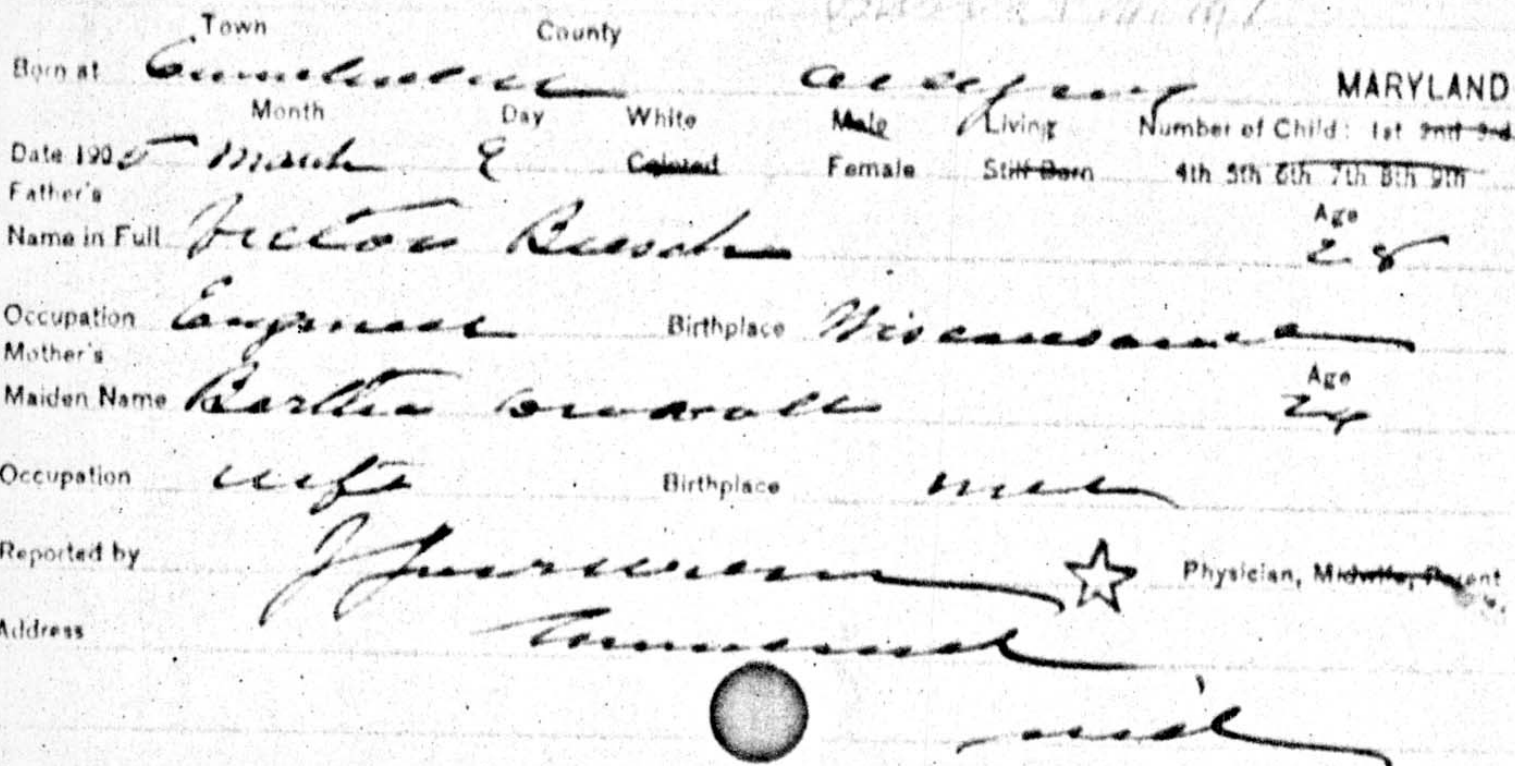 Town County
Born at Cumberland Allegany MARYLAND
Month Day White Male Living Number of Child: 1st 2nd 3rd
Date 1905 March 9 Colored Female Still Born 4th 5th 6th 7th 8th 9th
Father's Age
Name in Full Victor Busch 28
Occupation Engineer Birthplace
Mother's Age
Maiden Name Bertha 24
Occupation wife Birthplace Md
Reported by Physician, Midwife, Parent
Address
Md